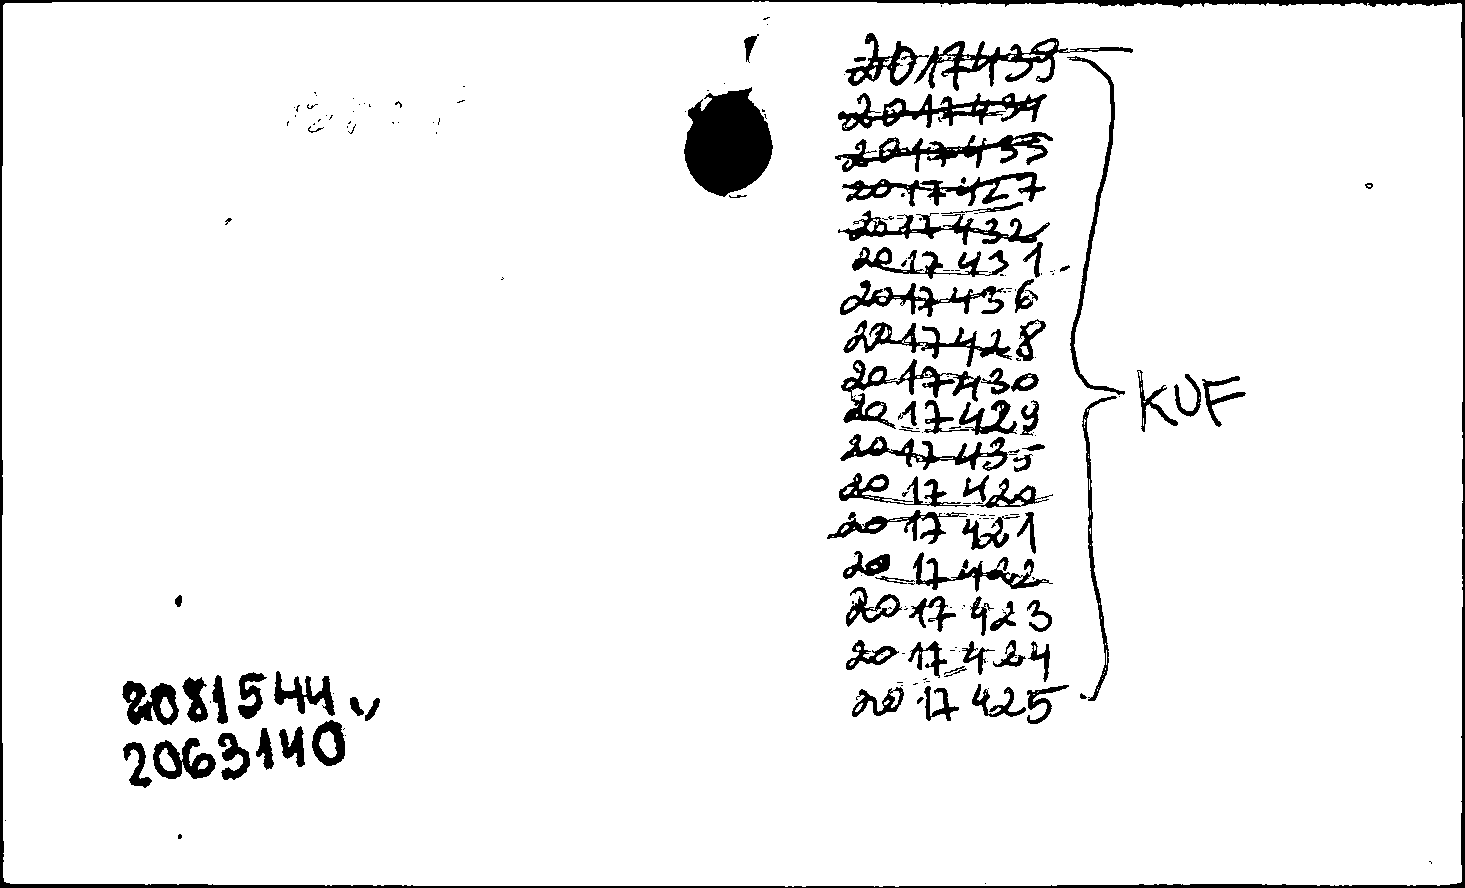 2017439
2017434
2017433
2017427
2017432
2017431
2017436
2017428
2017430
KUF
2017429
2017435
2017420
2017421
2017422
2017423
2017424
2017425
2081544
2063140